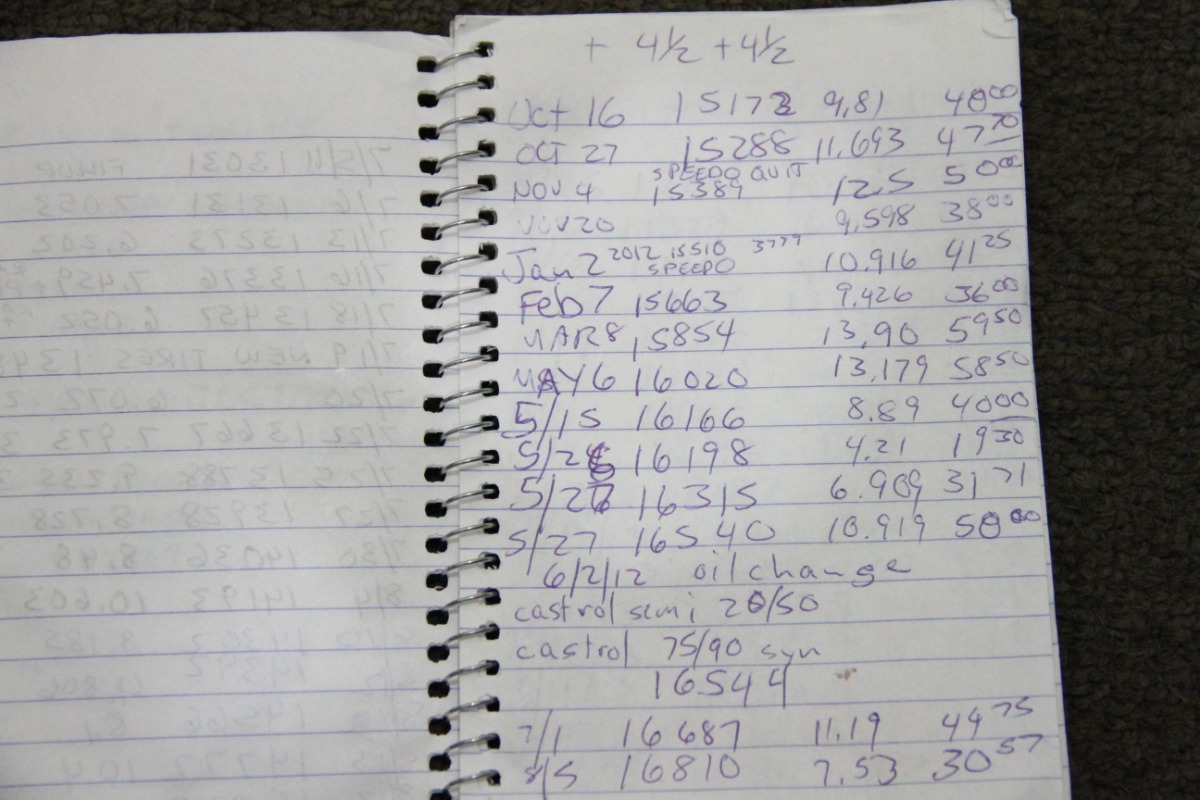 + 4½ + 4½
Oct 16 15173 9.81 40 00
OCT 27 15288 11.693 47 70
SPEEDO QUIT
NOV 4 15389 12.5 50 00
NOV 20 9.598 38 00
Jan 2 2012 15510 3779 10.916 41 25
SPEEDO
Feb 7 15663 9.426 36 00
MAR 8 15854 13.90 59 50
MAY 6 16020 13.179 58 50
5/15 16166 8.89 40 00
5/26 16198 4.21 19 30
5/26 16315 6.909 31 71
5/27 16540 10.919 50 00
6/2/12 oil change
castrol semi 20/50
castrol 75/90 syn
16544
7/1 16687 11.19 44 75
8/5 16810 7.53 30 57